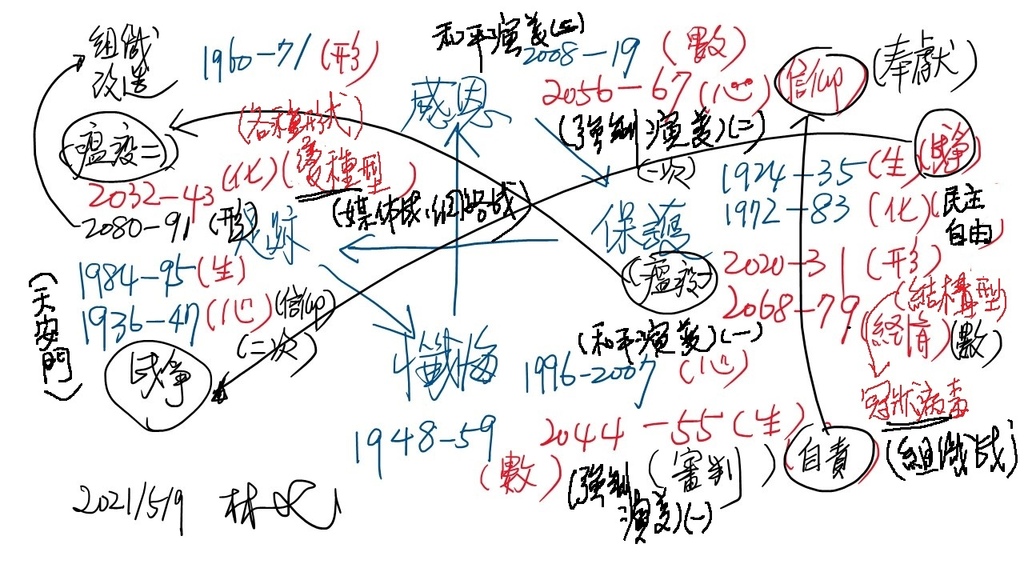 組織
改造
1960-71(形)
和平演義(二)
2008-19(數)
2056-67(心)
信仰
(奉獻)
感恩
(各種形式)
(瘟疫二)
(強制演義)(二)
(一次)
1924-35(生)
1972-83(化)
(民主
自由)
2032-43(化)(變種型)
2080-91(形)
(媒体战,網路战)
足跡
保護
(瘟疫一)
2020-31(形)
(結構型)
2068-79
(經脊)(數)
1984-95(生)
1936-47(心)(信仰)
(天安門)
(二次)
懺悔
(和平演義)(一)
1996-2007(心)
冠狀病毒
1948-59
(數)
2044-55(生)
(審判)
自責
(組織战)
(強制
演義)(一)
2021/5/9